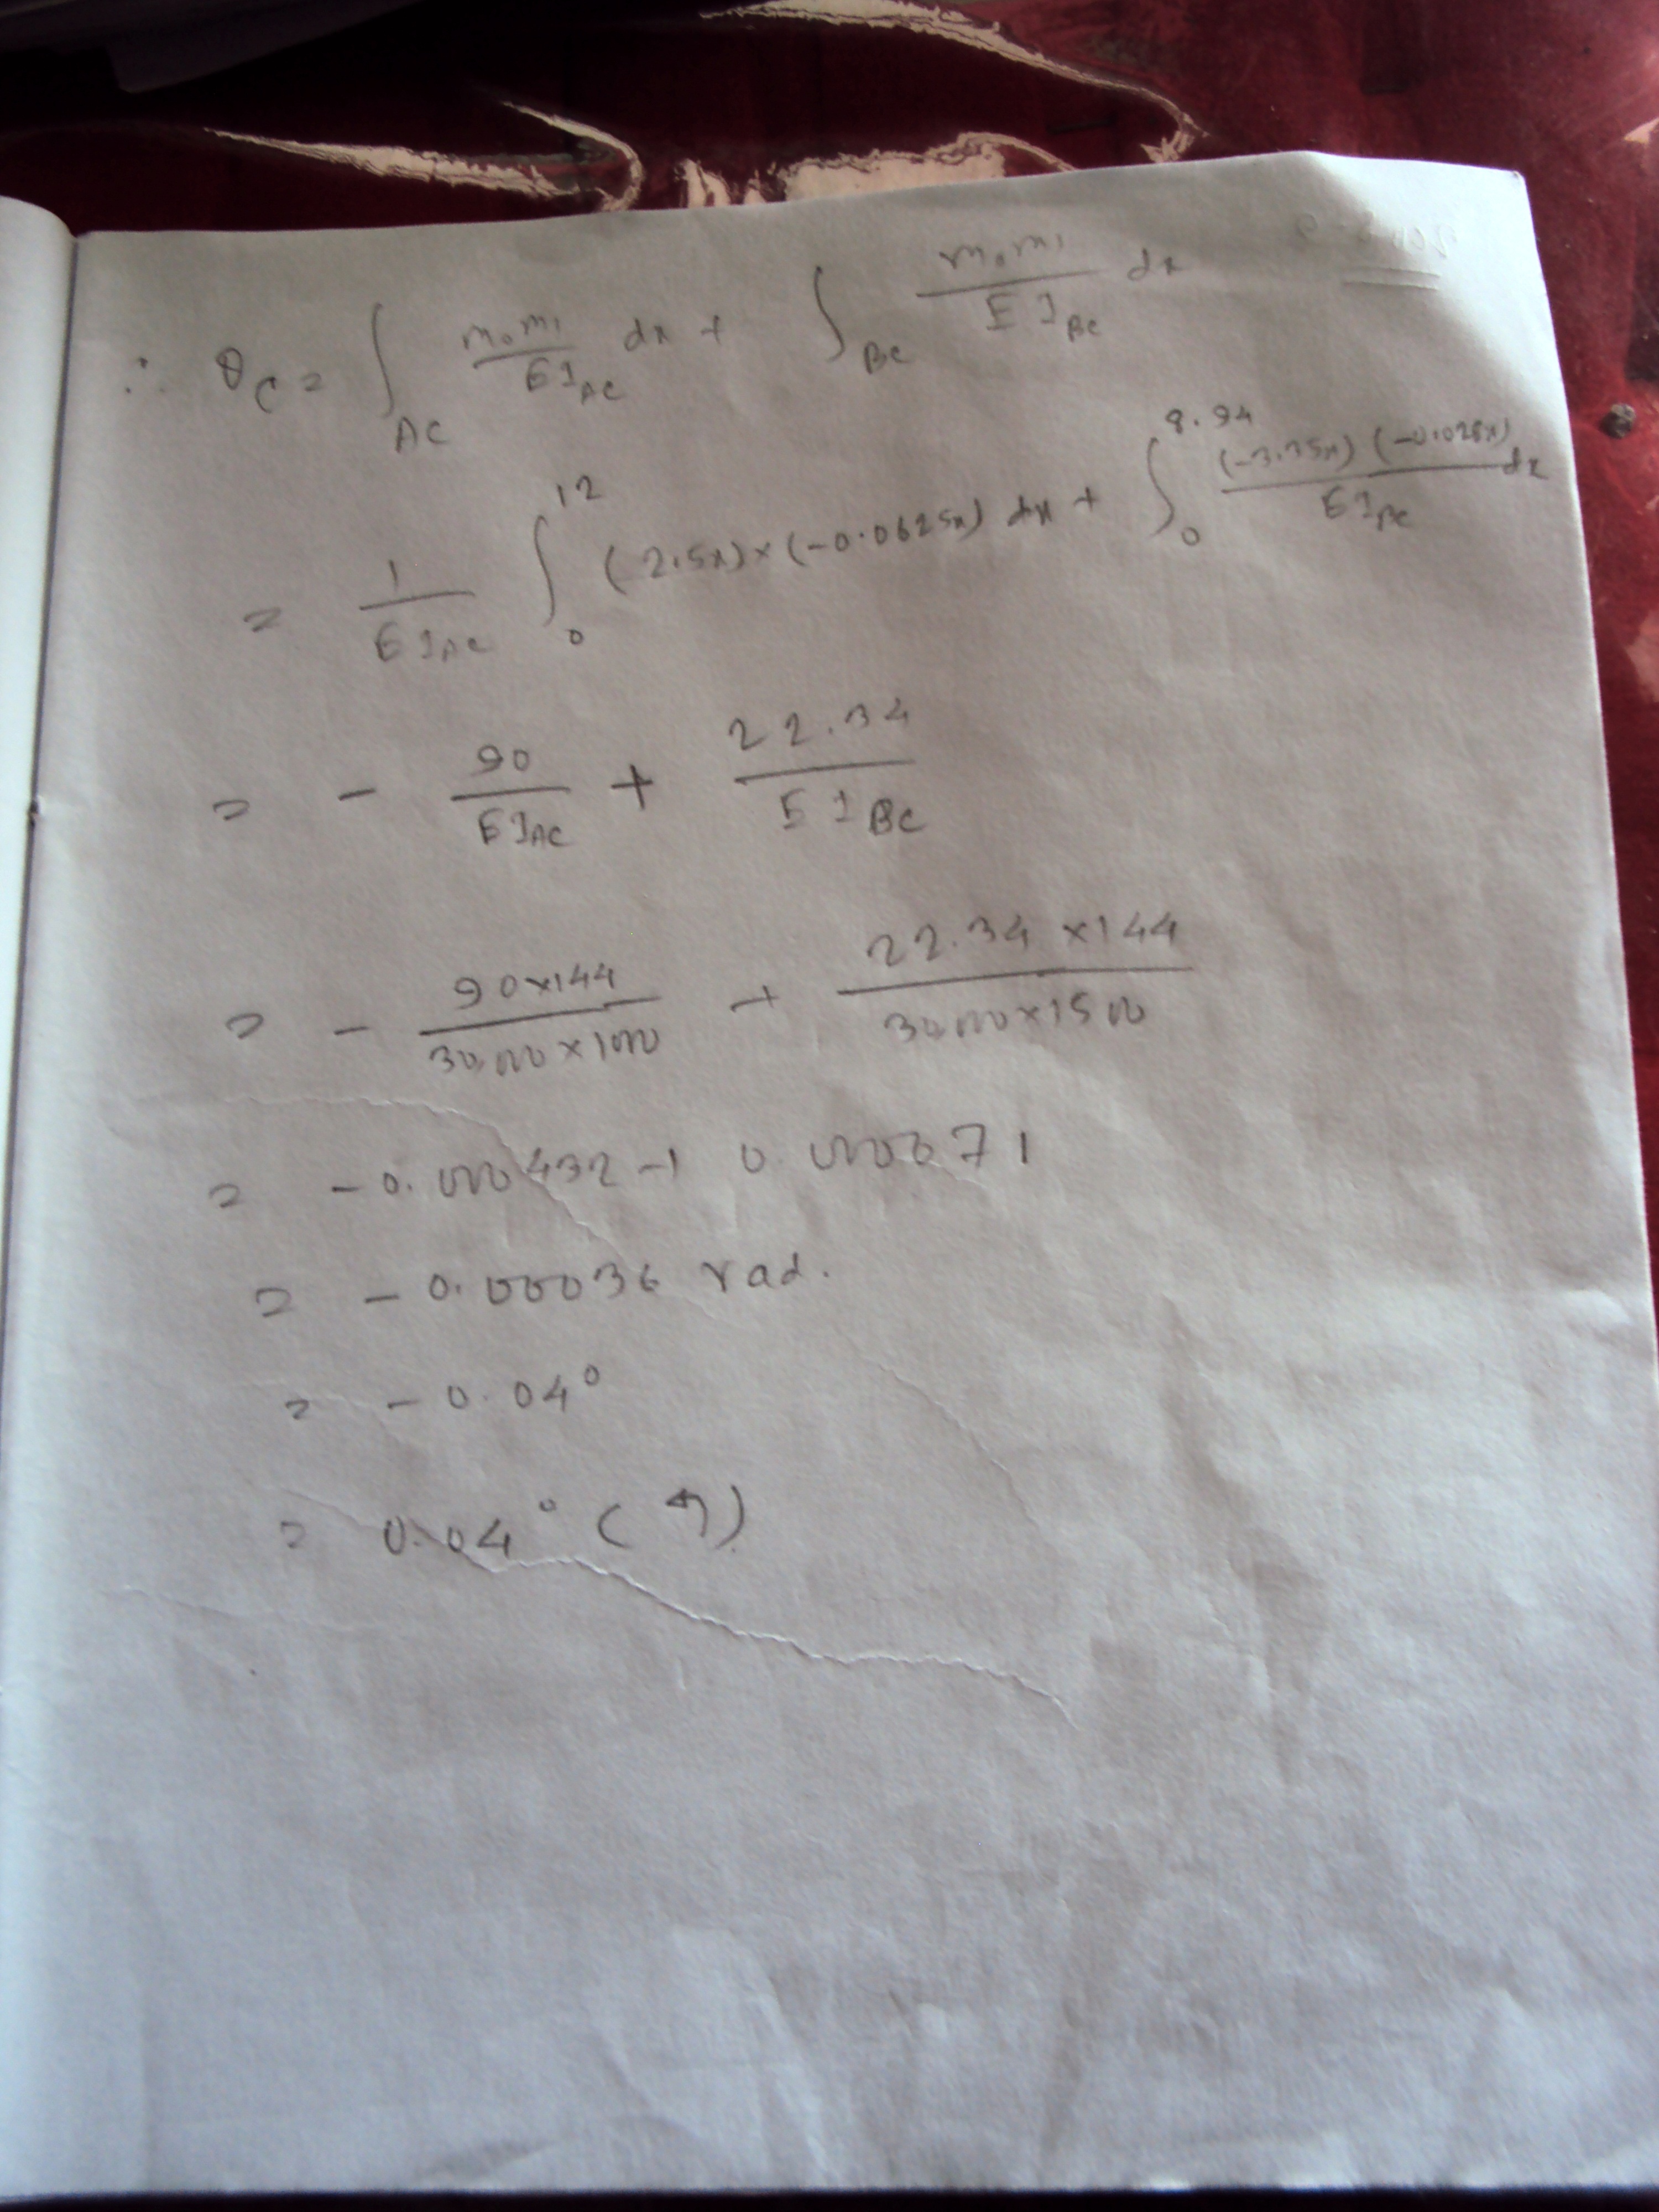 ∴ θc = ∫AC m₀m₁/EI_AC dx + ∫BC m₀m₁/EI_BC dx
= 1/EI_AC ∫₀¹² (2.5x)×(-0.0625x) dx + ∫₀^8.94 (-3.35x)(-0.028x)/EI_BC dx
= - 90/EI_AC + 22.34/EI_BC
= - 90×144/30,000×1000 + 22.34×144/30,000×1500
= -0.000432 + 0.000071
= -0.00036 rad.
= -0.04°
= 0.04° (↰)